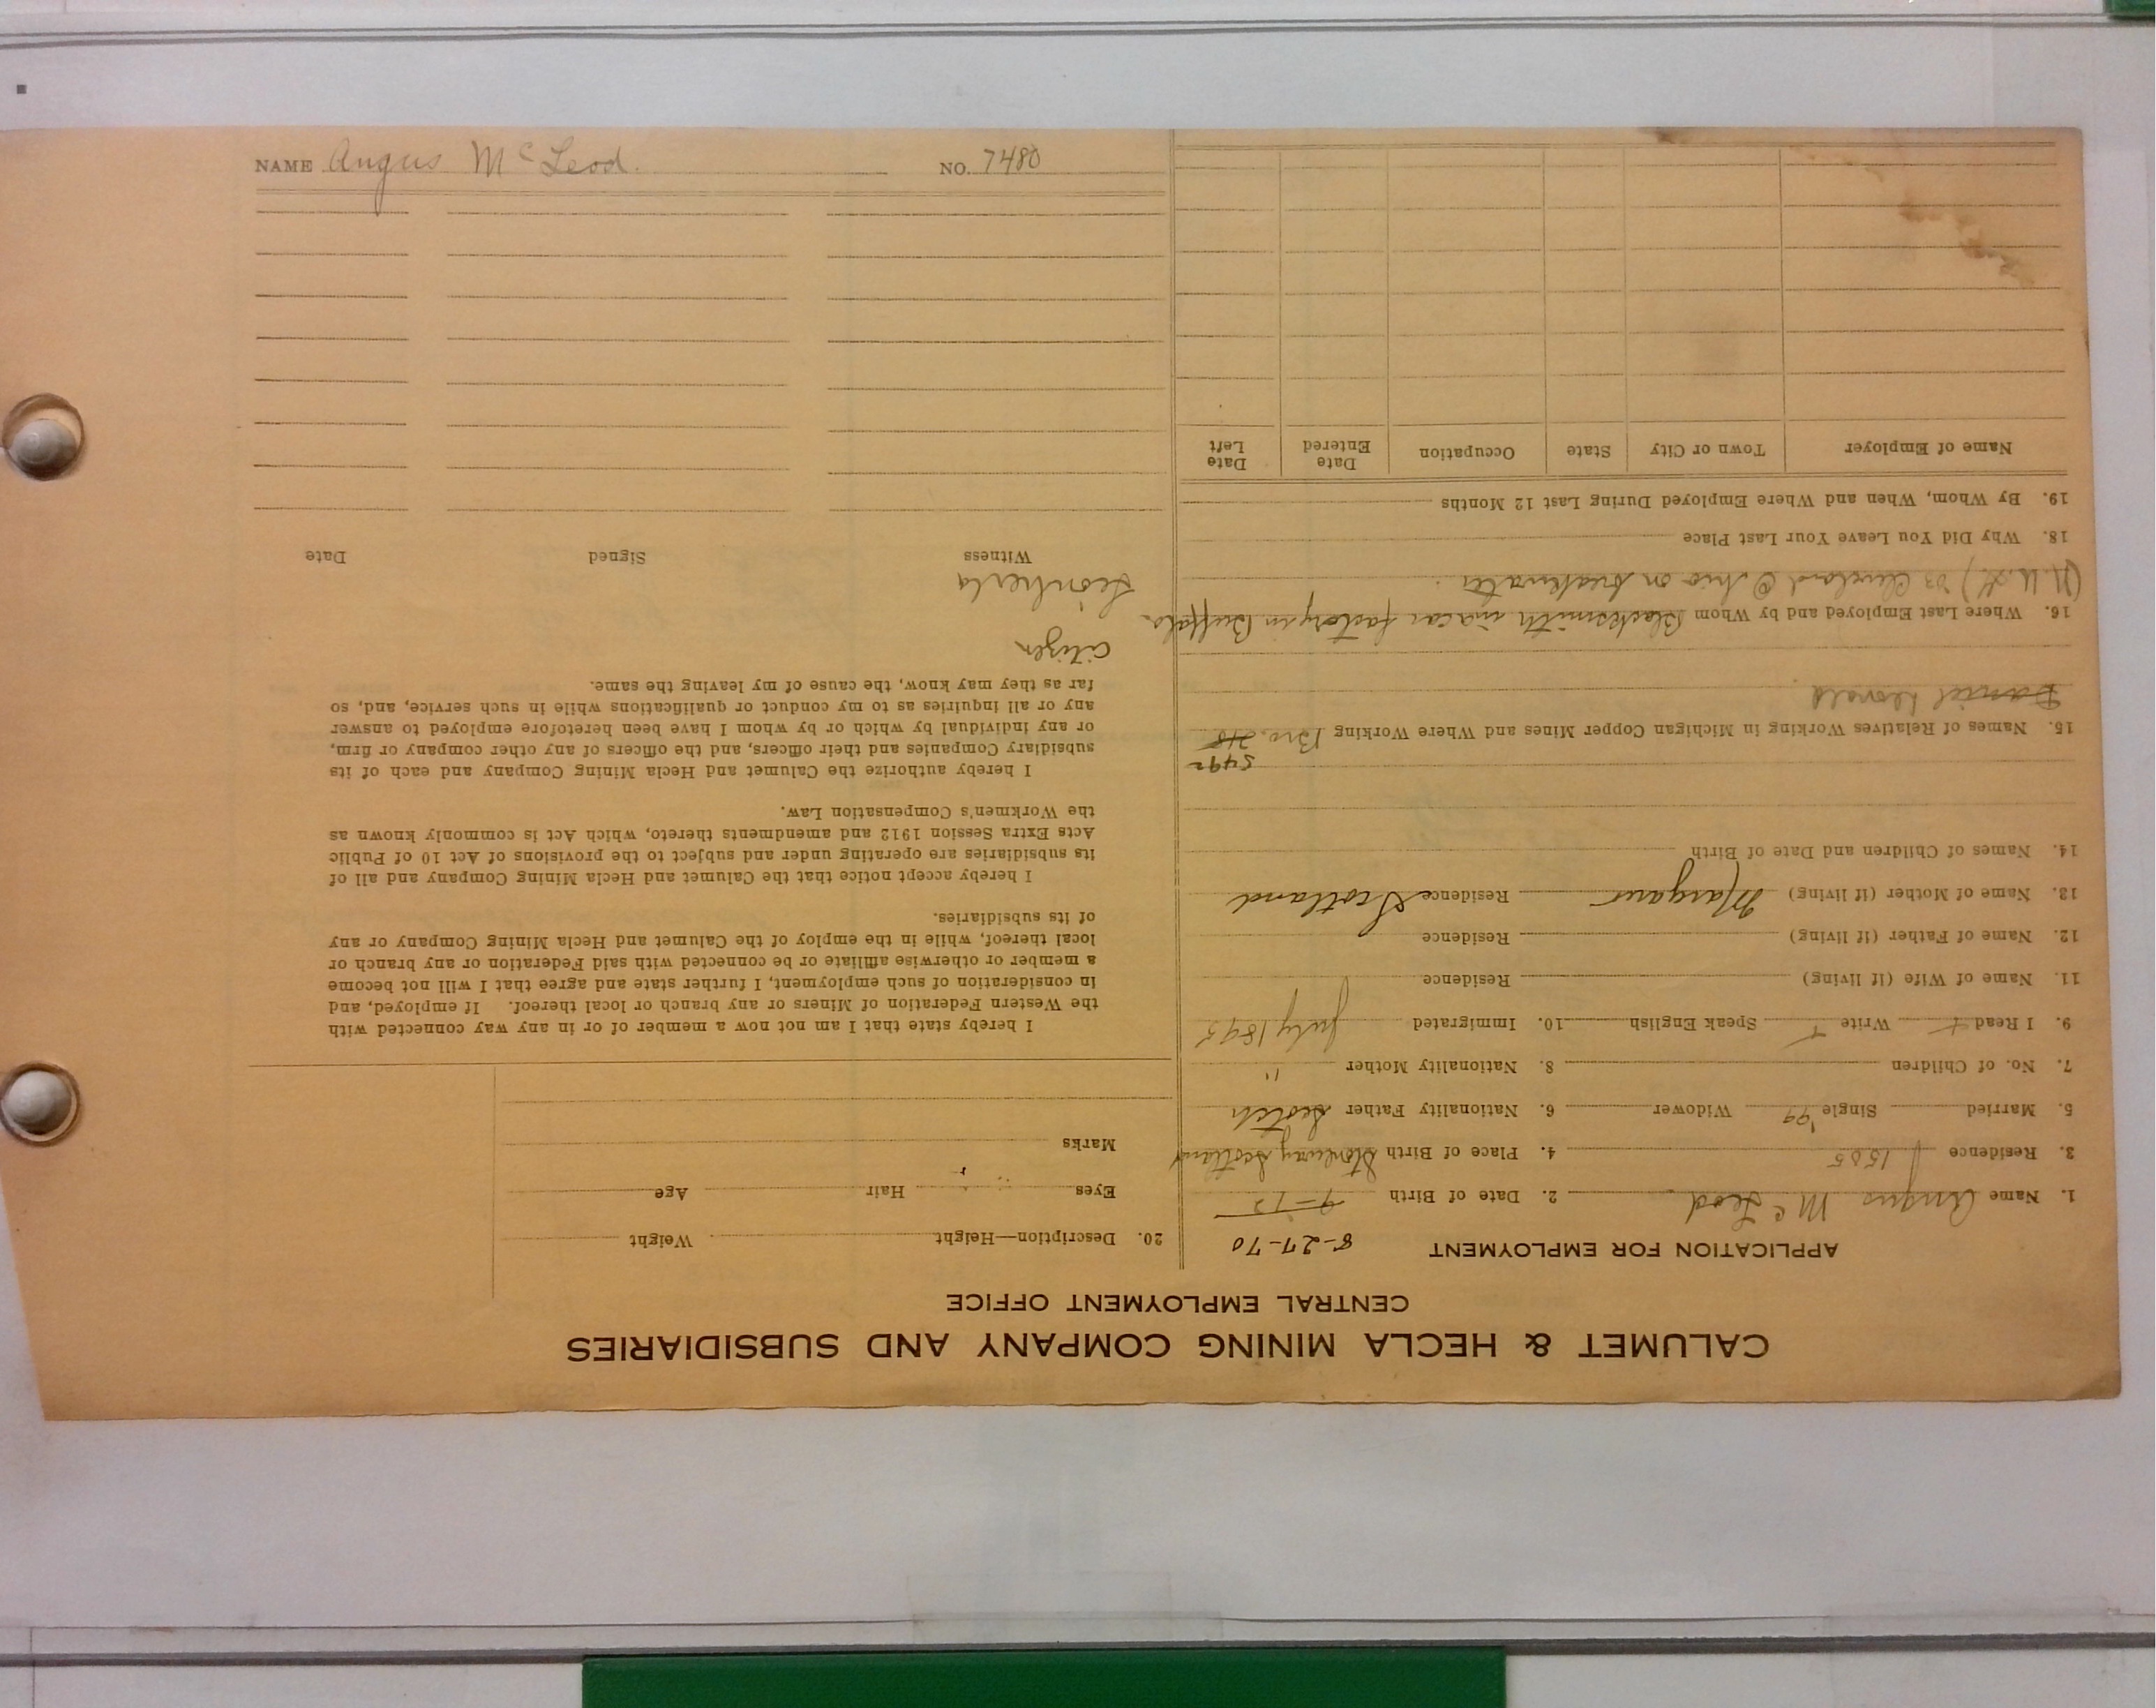 CALUMET & HECLA MINING COMPANY AND SUBSIDIARIES
CENTRAL EMPLOYMENT OFFICE
APPLICATION FOR EMPLOYMENT 8-27-70
1. Name Angus Mc Leod 2. Date of Birth 9-12
3. Residence 1505 4. Place of Birth Scotland
5. Married Single '99 Widower 6. Nationality Father Scotch
7. No. of Children 8. Nationality Mother "
9. I Read + Write + Speak English 10. Immigrated July 1895
11. Name of Wife (if living) Residence
12. Name of Father (if living) Residence
13. Name of Mother (if living) Residence Scotland
14. Names of Children and Date of Birth
5492
15. Names of Relatives Working in Michigan Copper Mines and Where Working Bro.
Daniel
16. Where Last Employed and by Whom Blacksmith in car factory in Buffalo
(N.U.) '03 Cleveland Ohio on breakwater
18. Why Did You Leave Your Last Place
19. By Whom, When and Where Employed During Last 12 Months
Name of Employer Town or City State Occupation Date Entered Date Left
20. Description—Height Weight
Eyes Hair Age
Marks
I hereby state that I am not now a member of or in any way connected with
the Western Federation of Miners or any branch or local thereof. If employed, and
in consideration of such employment, I further state and agree that I will not become
a member or otherwise affiliate or be connected with said Federation or any branch or
local thereof, while in the employ of the Calumet and Hecla Mining Company or any
of its subsidiaries.
I hereby accept notice that the Calumet and Hecla Mining Company and all of
its subsidiaries are operating under and subject to the provisions of Act 10 of Public
Acts Extra Session 1912 and amendments thereto, which Act is commonly known as
the Workmen's Compensation Law.
I hereby authorize the Calumet and Hecla Mining Company and each of its
subsidiary Companies and their officers, and the officers of any other company or firm,
or any individual by which or by whom I have been heretofore employed to answer
any or all inquiries as to my conduct or qualifications while in such service, and, so
far as they may know, the cause of my leaving the same.
Citizen
Witness Signed Date
NAME Angus Mc Leod. NO. 7480